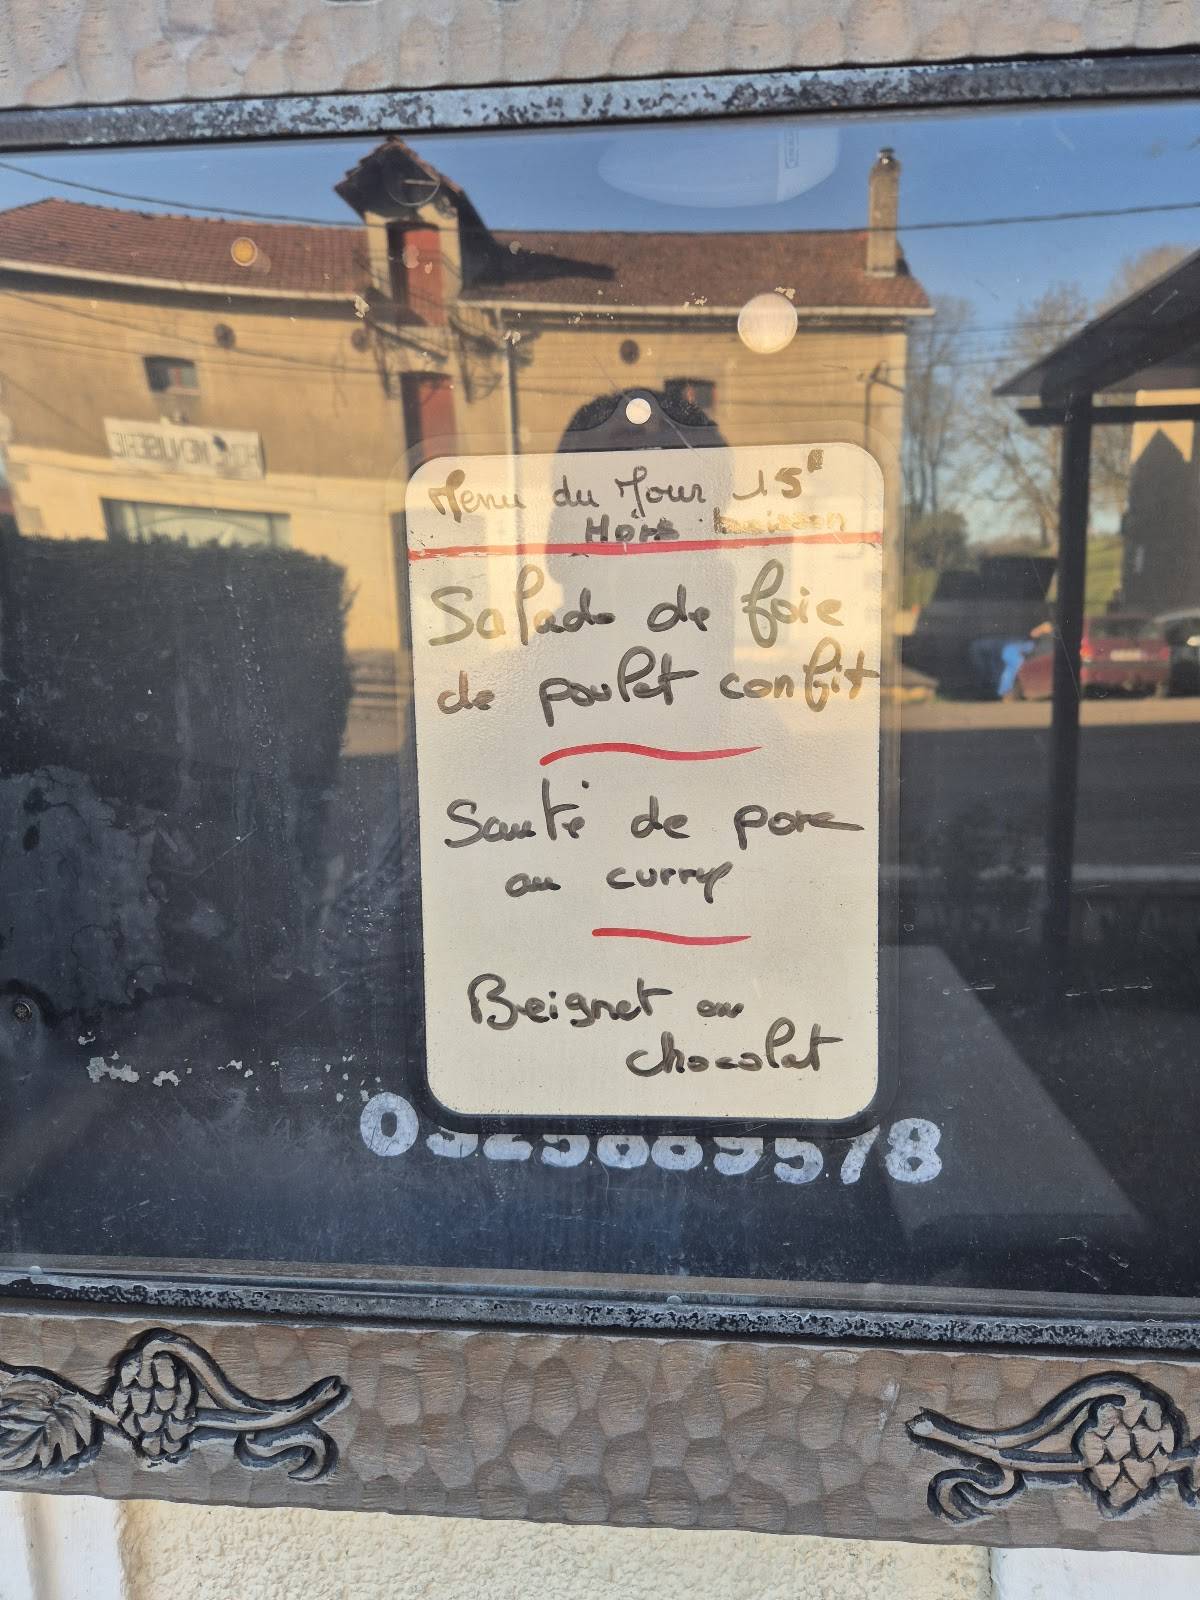 Menu du Jour 15€
Hors boisson
Salade de foie
de poulet confit
Sauté de porc
au curry
Beignet au
chocolat